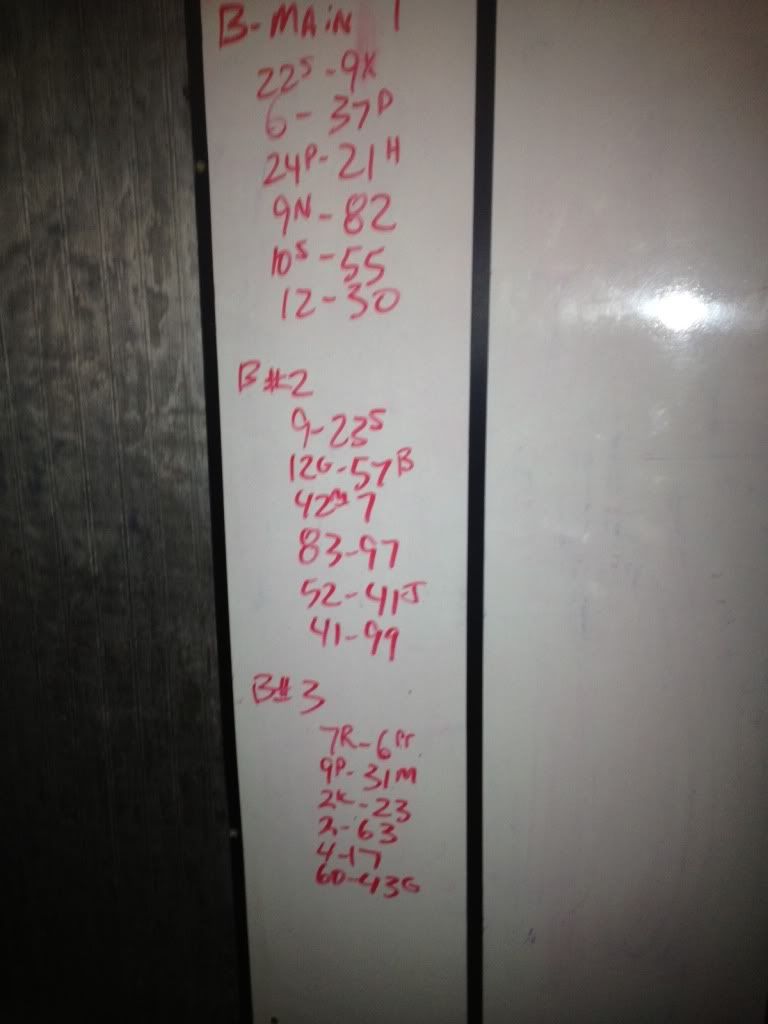 B-MAiN 1
22S-9X
6-37P
24P-21H
9N-82
10S-55
12-30
B#2
9-23S
12G-57B
42M-7
83-97
52-41J
41-99
B#3
7R-6Pr
9P-31M
2K-23
-63
4-17
60-43G